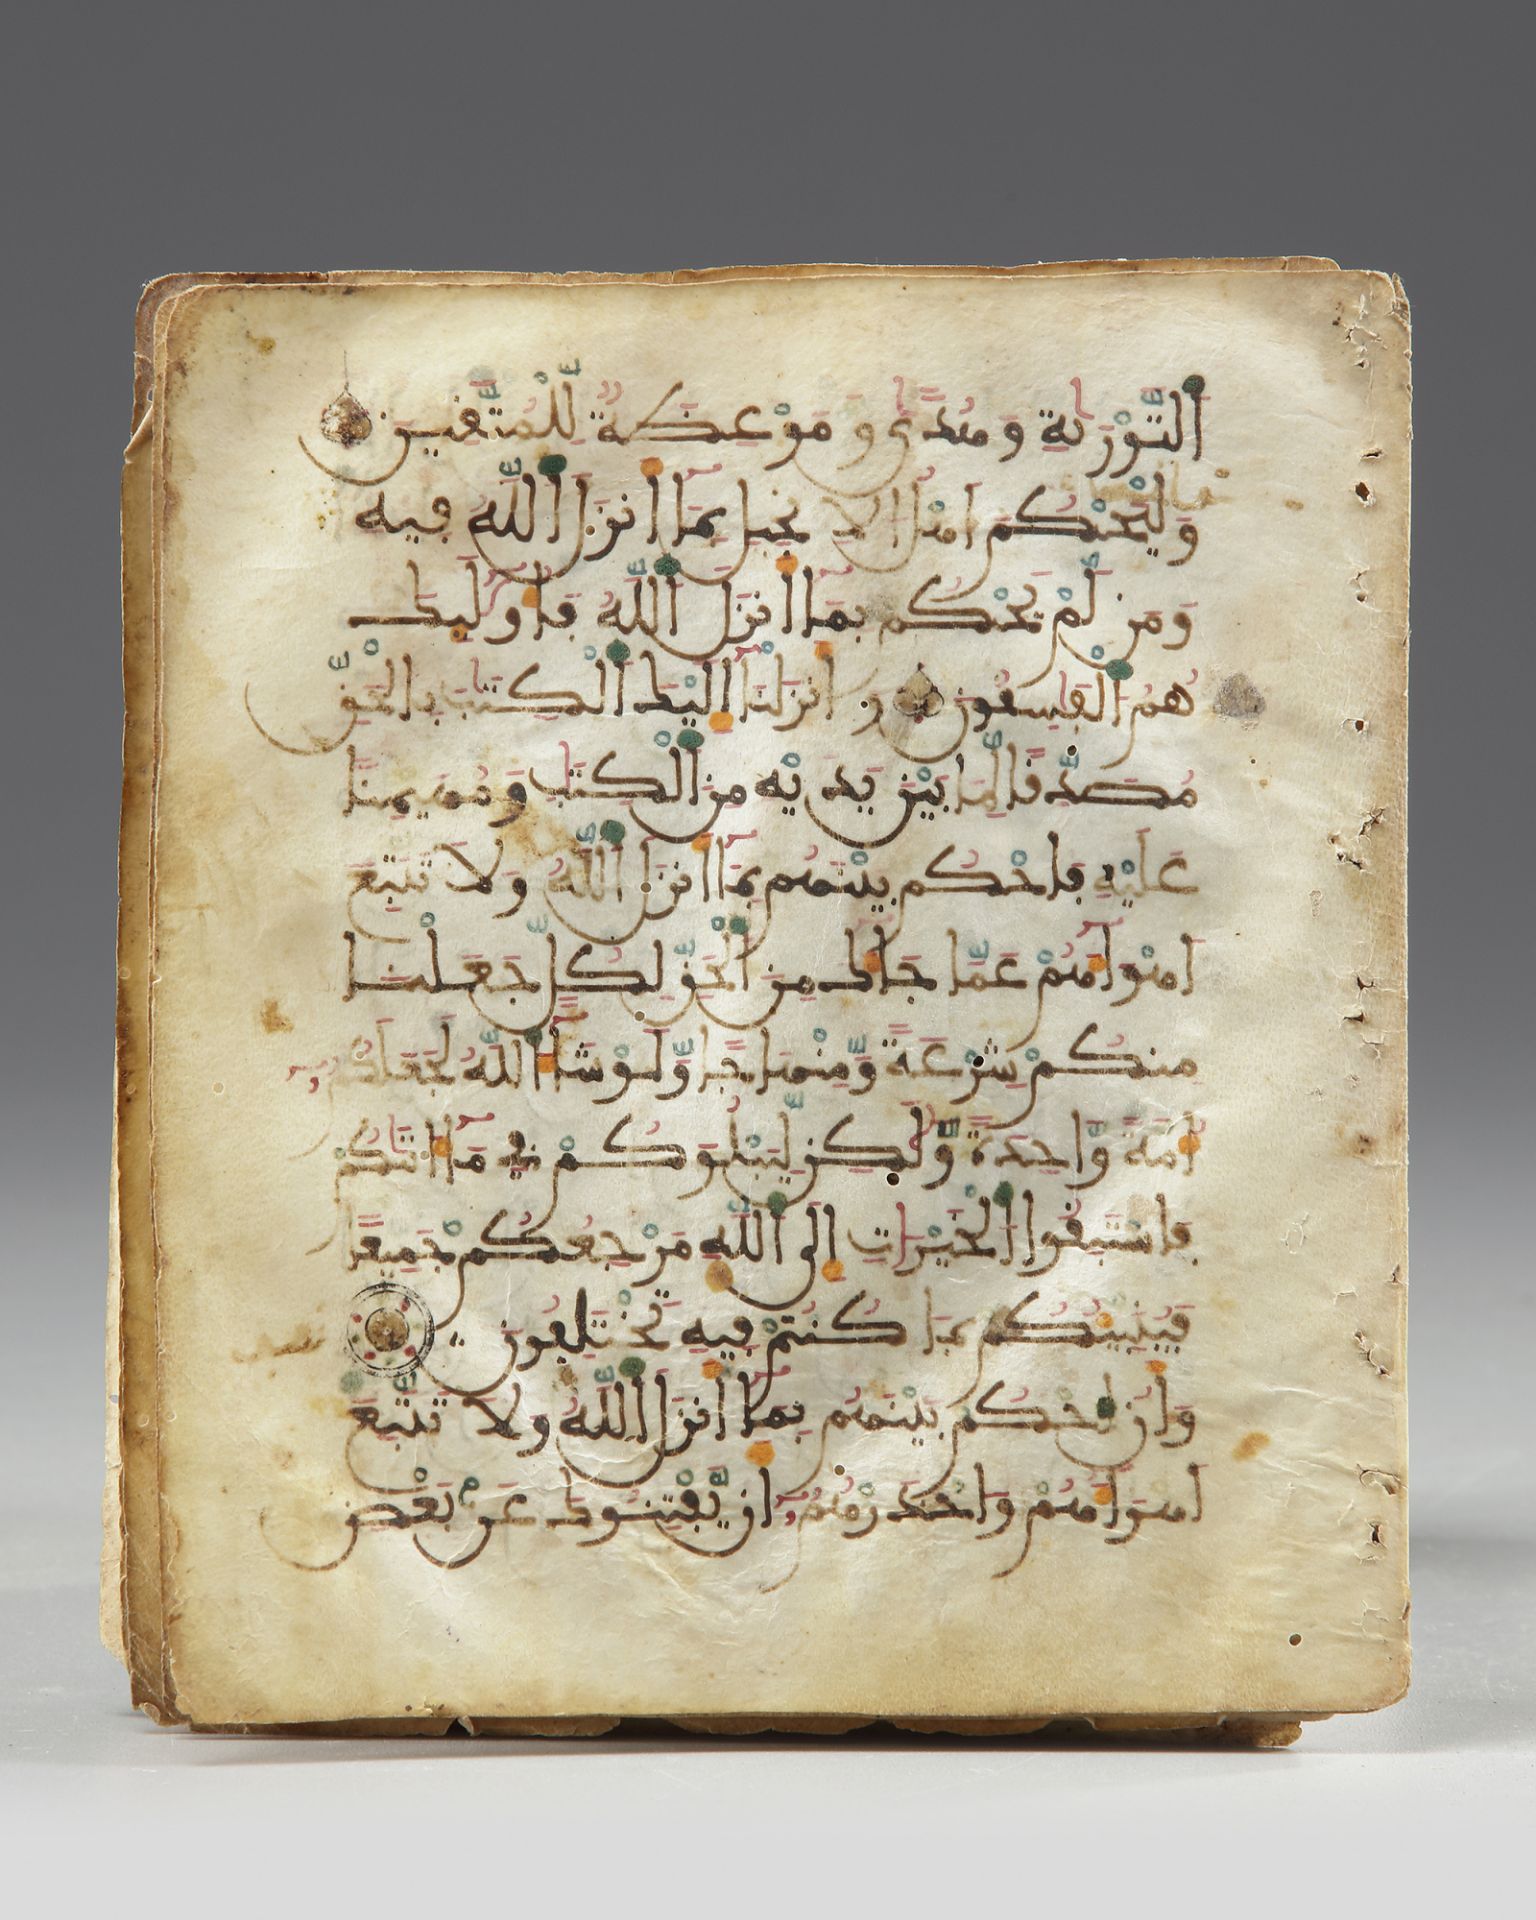 اَلتَّوْرٰىةِ وَهُدًى وَمَوْعِظَةً لِّلْمُتَّقِينَ
وَلْيَحْكُمَ اَهْلُ اَلِانجِيلِ بِمَآ أَنزَلَ اَللَّهُ فِيهِ
وَمَن لَّمْ يَحْكُم بِمَآ أَنزَلَ اَللَّهُ فَأُوْلَٰٓئِكَ
هُمُ اَلْفَٰسِقُونَ وَأَنزَلْنَآ إِلَيْكَ اَلْكِتَٰبَ بِالْحَقِّ
مُصَدِّقًا لِّمَا بَيْنَ يَدَيْهِ مِنَ اَلْكِتَٰبِ وَمُهَيْمِنًا
عَلَيْهِ فَاحْكُم بَيْنَهُم بِمَآ أَنزَلَ اَللَّهُ وَلَا تَتَّبِعَ
اَهْوَآءَهُمْ عَمَّا جَآءَكَ مِنَ اَلْحَقِّ لِكُلٍّ جَعَلْنَا
مِنكُمْ شِرْعَةً وَّمِنْهَاجًا وَّلَوْ شَآءَ اَللَّهُ لَجَعَلَكُمُۥٓ
أُمَّةً وَّٰحِدَةً وَّلَٰكِن لِّيَبْلُوَكُمْ فِي مَآ ءَاتَىٰكُمْ
فَاسْتَبِقُوا اَلْخَيْرَٰتِ إِلَى اَللَّهِ مَرْجِعُكُمْ جَمِيعًا
فَيُنَبِّئُكُم بِمَا كُنتُمْ فِيهِ تَخْتَلِفُونَ
وَأَنُ اُحْكُم بَيْنَهُم بِمَآ أَنزَلَ اَللَّهُ وَلَا تَتَّبِعَ
اَهْوَآءَهُمْ وَاحْذَرْهُمُۥٓ أَن يَّفْتِنُوكَ عَنۢ بَعْضِ